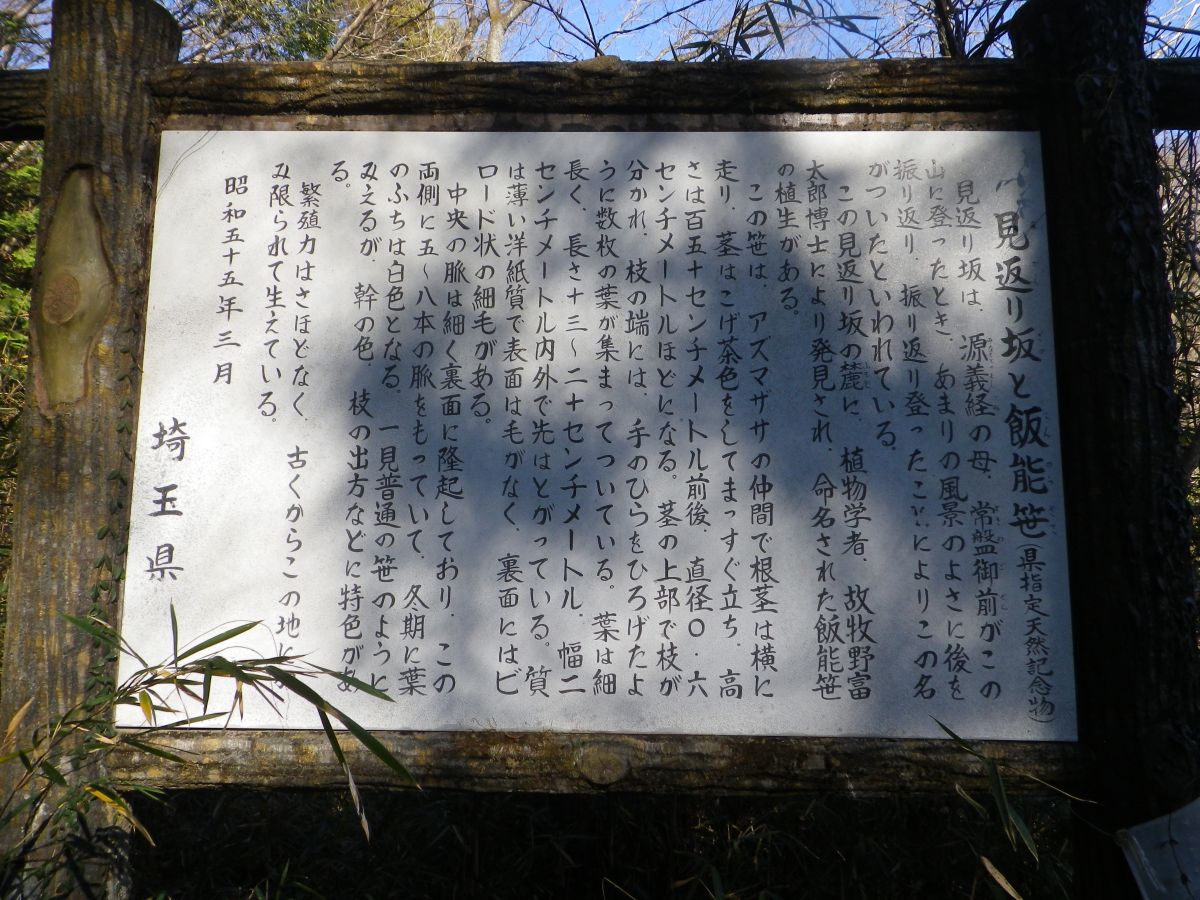 見返り坂と飯能笹(県指定天然記念物)
見返り坂は、源義経の母、常盤御前がこの
山に登ったとき、あまりの風景のよさに後を
振り返り、振り返り登ったことによりこの名
がついたといわれている。
この見返り坂の麓に、植物学者、故牧野富
太郎博士により発見され、命名された飯能笹
の植生がある。
この笹は、アズマザサの仲間で根茎は横に
走り、茎はこげ茶色をしてまっすぐ立ち、高
さは百五十センチメートル前後、直径〇・六
センチメートルほどになる。茎の上部で枝が
分かれ、枝の端には、手のひらをひろげたよ
うに数枚の葉が集まってついている。葉は細
長く、長さ十三〜二十センチメートル、幅二
センチメートル内外で先はとがっている。質
は薄い洋紙質で表面は毛がなく、裏面にはビ
ロード状の細毛がある。
中央の脈は細く裏面に隆起しており、この
両側に五〜八本の脈をもっていて、冬期に葉
のふちは白色となる。一見普通の笹のように
みえるが、幹の色、枝の出方などに特色があ
る。
繁殖力はさほどなく、古くからこの地に
み限られて生えている。
昭和五十五年三月
埼玉県